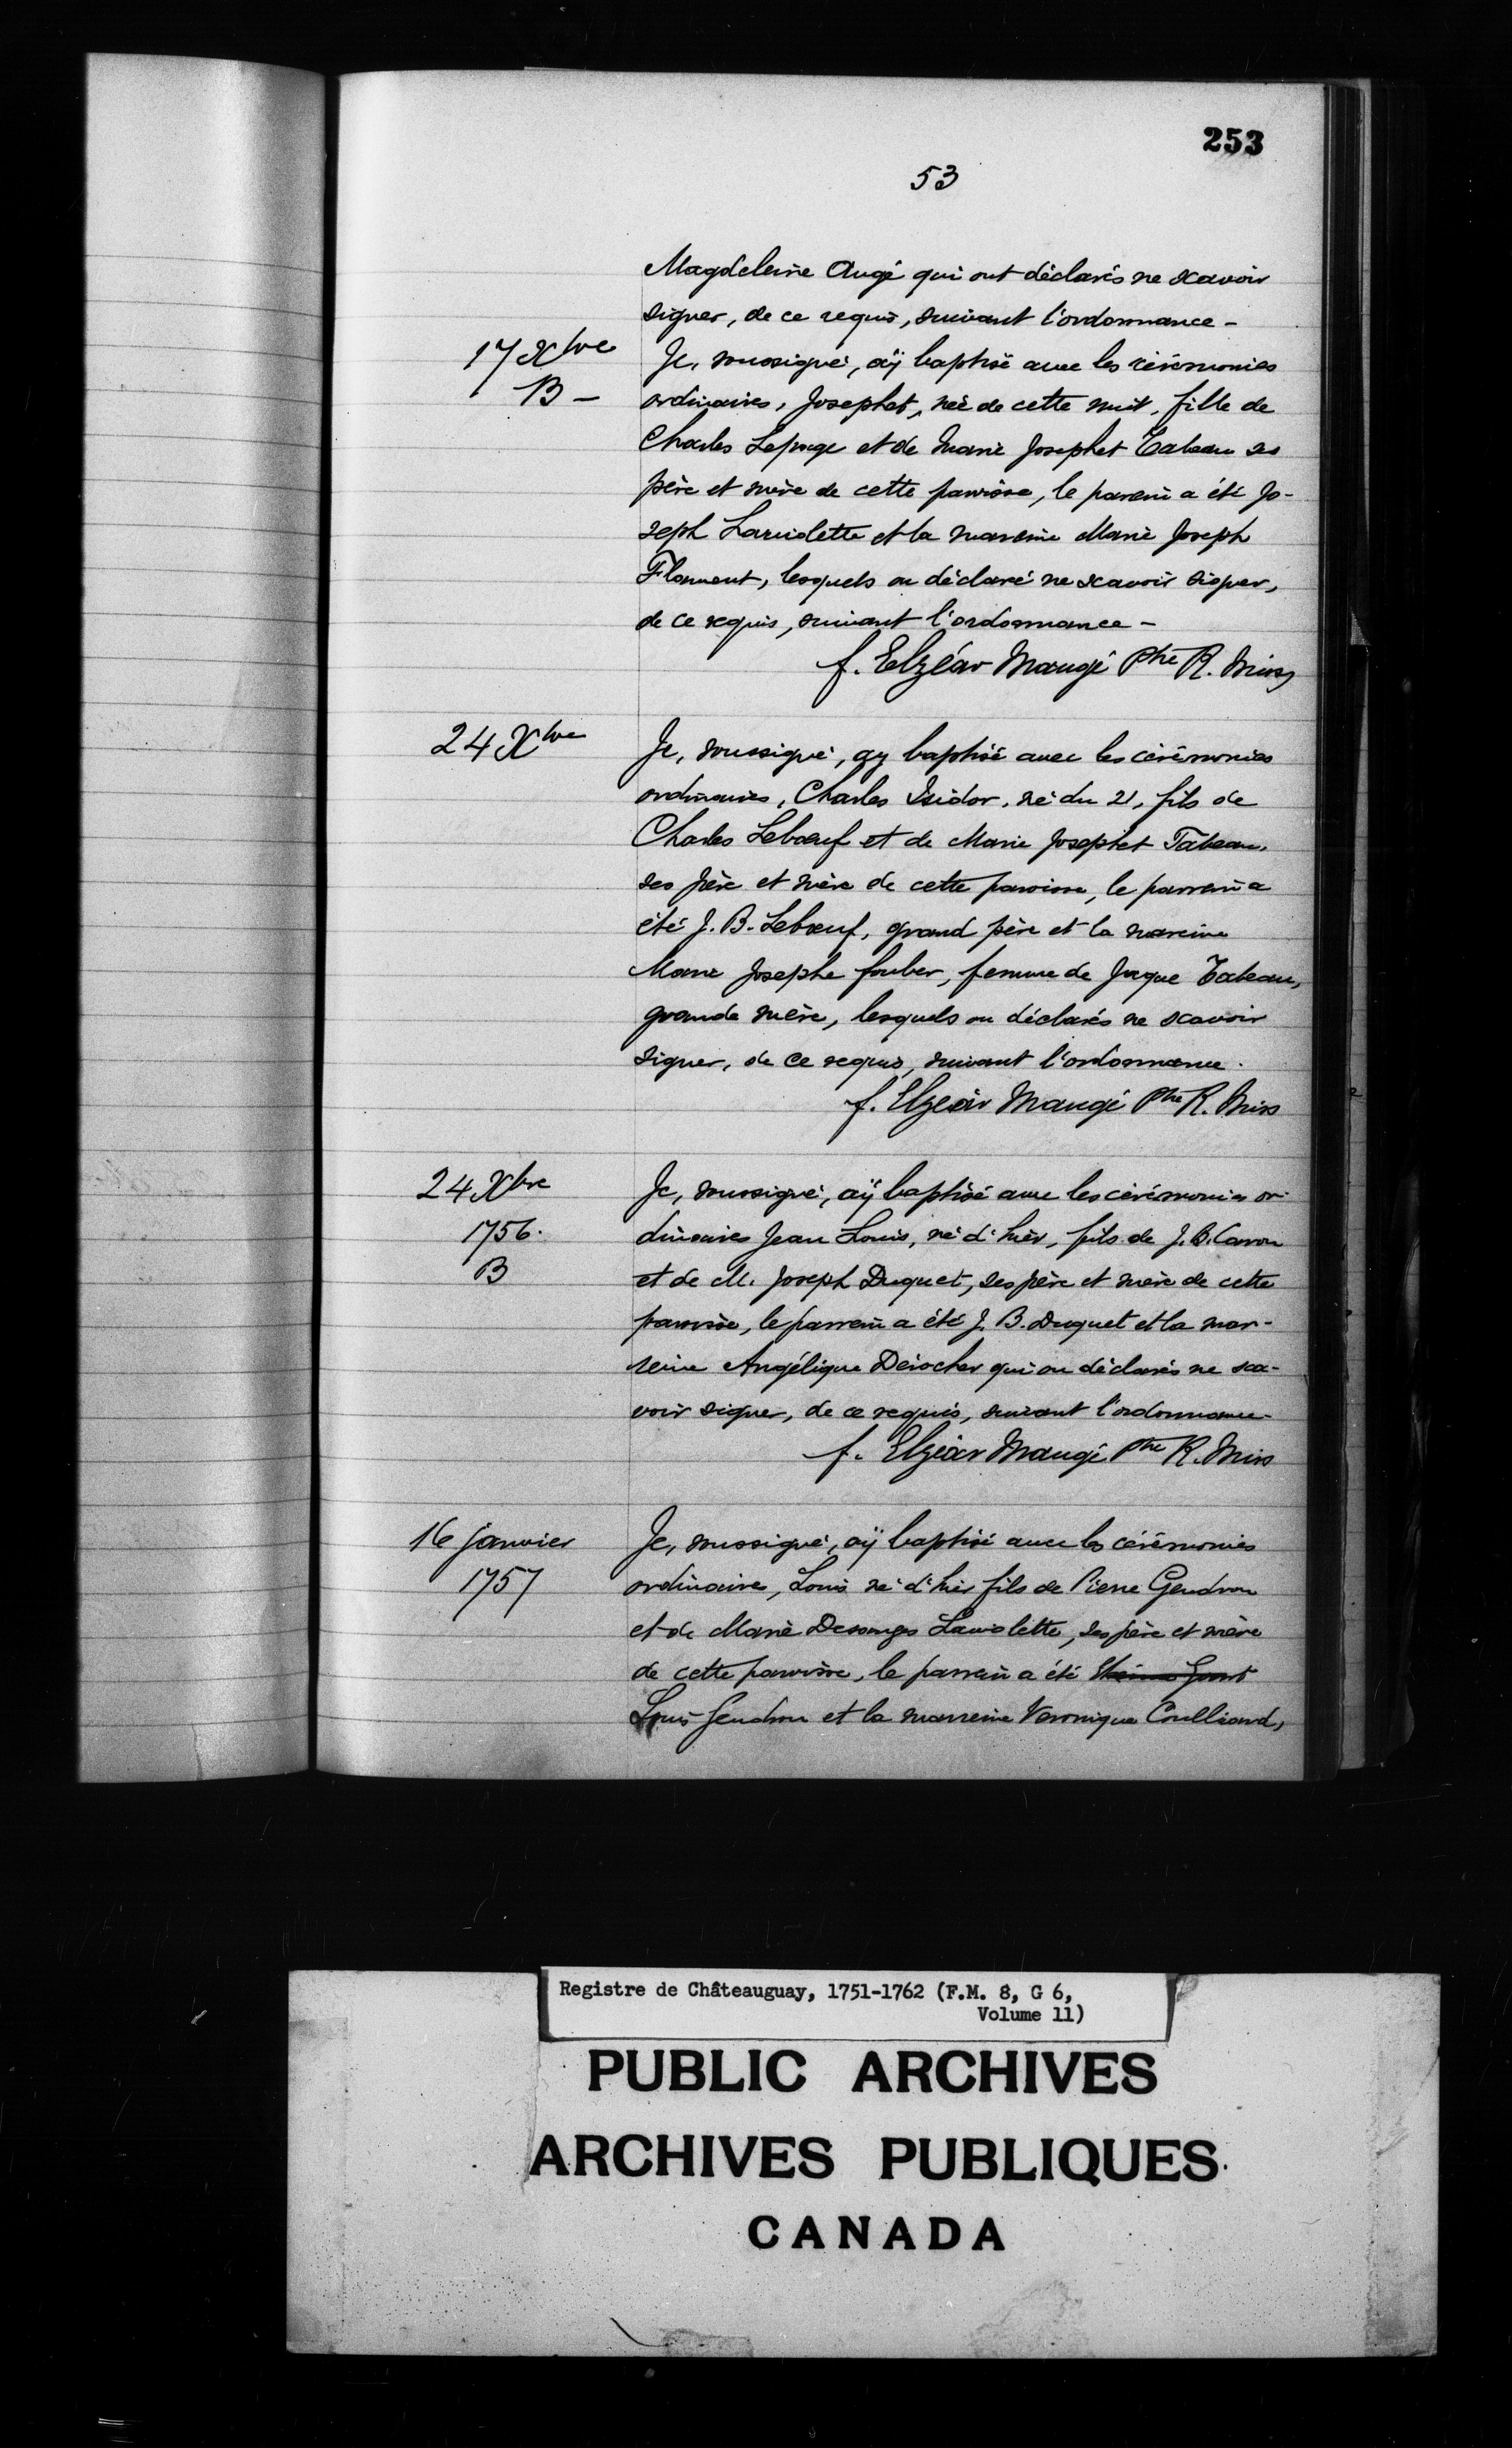 253
53
Magdeleine Augé qui ont déclarés ne scavoir
signer, de ce requis, suivant l'ordonnance -
17 Xbre
B -
Je, soussigné, aÿ baptisé avec les cérémonies
ordinaires, Josephet, née de cette nuit, fille de
Charles Lepage et de Marie Josephet Tabeau ses
père et mère de cette paroisse, le parein a été Jo-
seph Lariolette et la mareine Marie Joseph
Flament, lesquels on déclaré ne scavoir signer,
de ce requis, suivant l'ordonnance -
f. Elzéar Maugé Ptre R. Miss
24 Xbre
Je, soussigné, ay baptisé avec les cérémonies
ordinaires, Charles Isidor, né du 21, fils de
Charles Lebœuf et de Marie Josephet Tabeau,
ses père et mère de cette paroisse, le parrein a
été J. B. Lebœuf, grand père et la mareine
Marie Josephe fouber, femme de Jaque Tabeau,
grande mère, lesquels on déclarés ne scavoir
signer, de ce requis, suivant l'ordonnance.
f. Elzeár Maugé Ptre R. Miss
24 Xbre
1756.
B
Je, soussigné, aÿ baptisé avec les cérémonies or-
dinaires Jean Louis, né d'hièr, fils de J. B. Caron
et de M. Joseph Duquet, ses père et mère de cette
paroisse, le parrein a été J. B. Duquet et la mar-
reine Angélique Derocher qui on déclarés ne sca-
voir signer, de ce requis, suivant l'ordonnance -
f. Elzéar Maugé Ptre R. Miss
16 janvier
1757
Je, soussigné, aÿ baptisé avec les cérémonies
ordinaires, Louis né d'hier fils de Pierre Gendron
et de Marie Desanges Laviolette, ses père et mère
de cette paroisse, le parrein a été
Louis Gendron et la marreine Veronique Coulliard,
Registre de Châteauguay, 1751-1762 (F.M. 8, G 6,
Volume 11)
PUBLIC ARCHIVES
ARCHIVES PUBLIQUES
CANADA